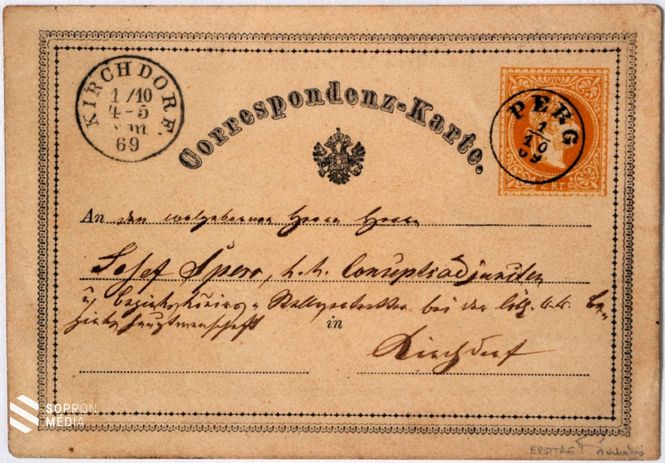 KIRCHDORF.
1/10
4-5
69
Correspondenz-Karte.
PERG
1
10
69
An den wolgebornen Herrn Herrn
Josef Spero, k.k. Conceptsadjuncten
u. Bezirks
bei der löbl. k.k. Be-
zirkshauptmannschaft in
Kirchdorf
SOPRON
MÉDIA
ERSTTAG